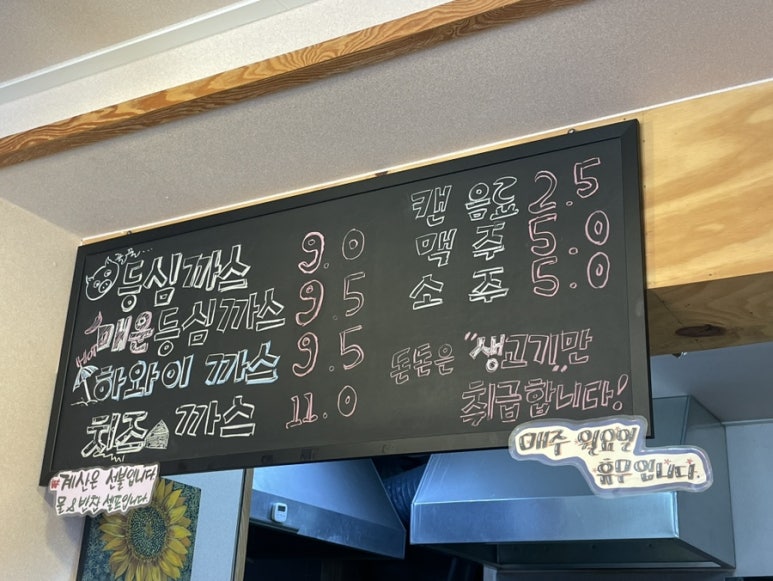 등심까스 9.0
HOT 매운등심까스 9.5
하와이 까스 9.5
치즈 까스 11.0
캔 음료 2.5
맥 주 5.0
소 주 5.0
돈돈은 "생고기"만
취급합니다!
*계산은 선불입니다
물&반찬 셀프입니다
매주 월요일
휴무입니다.